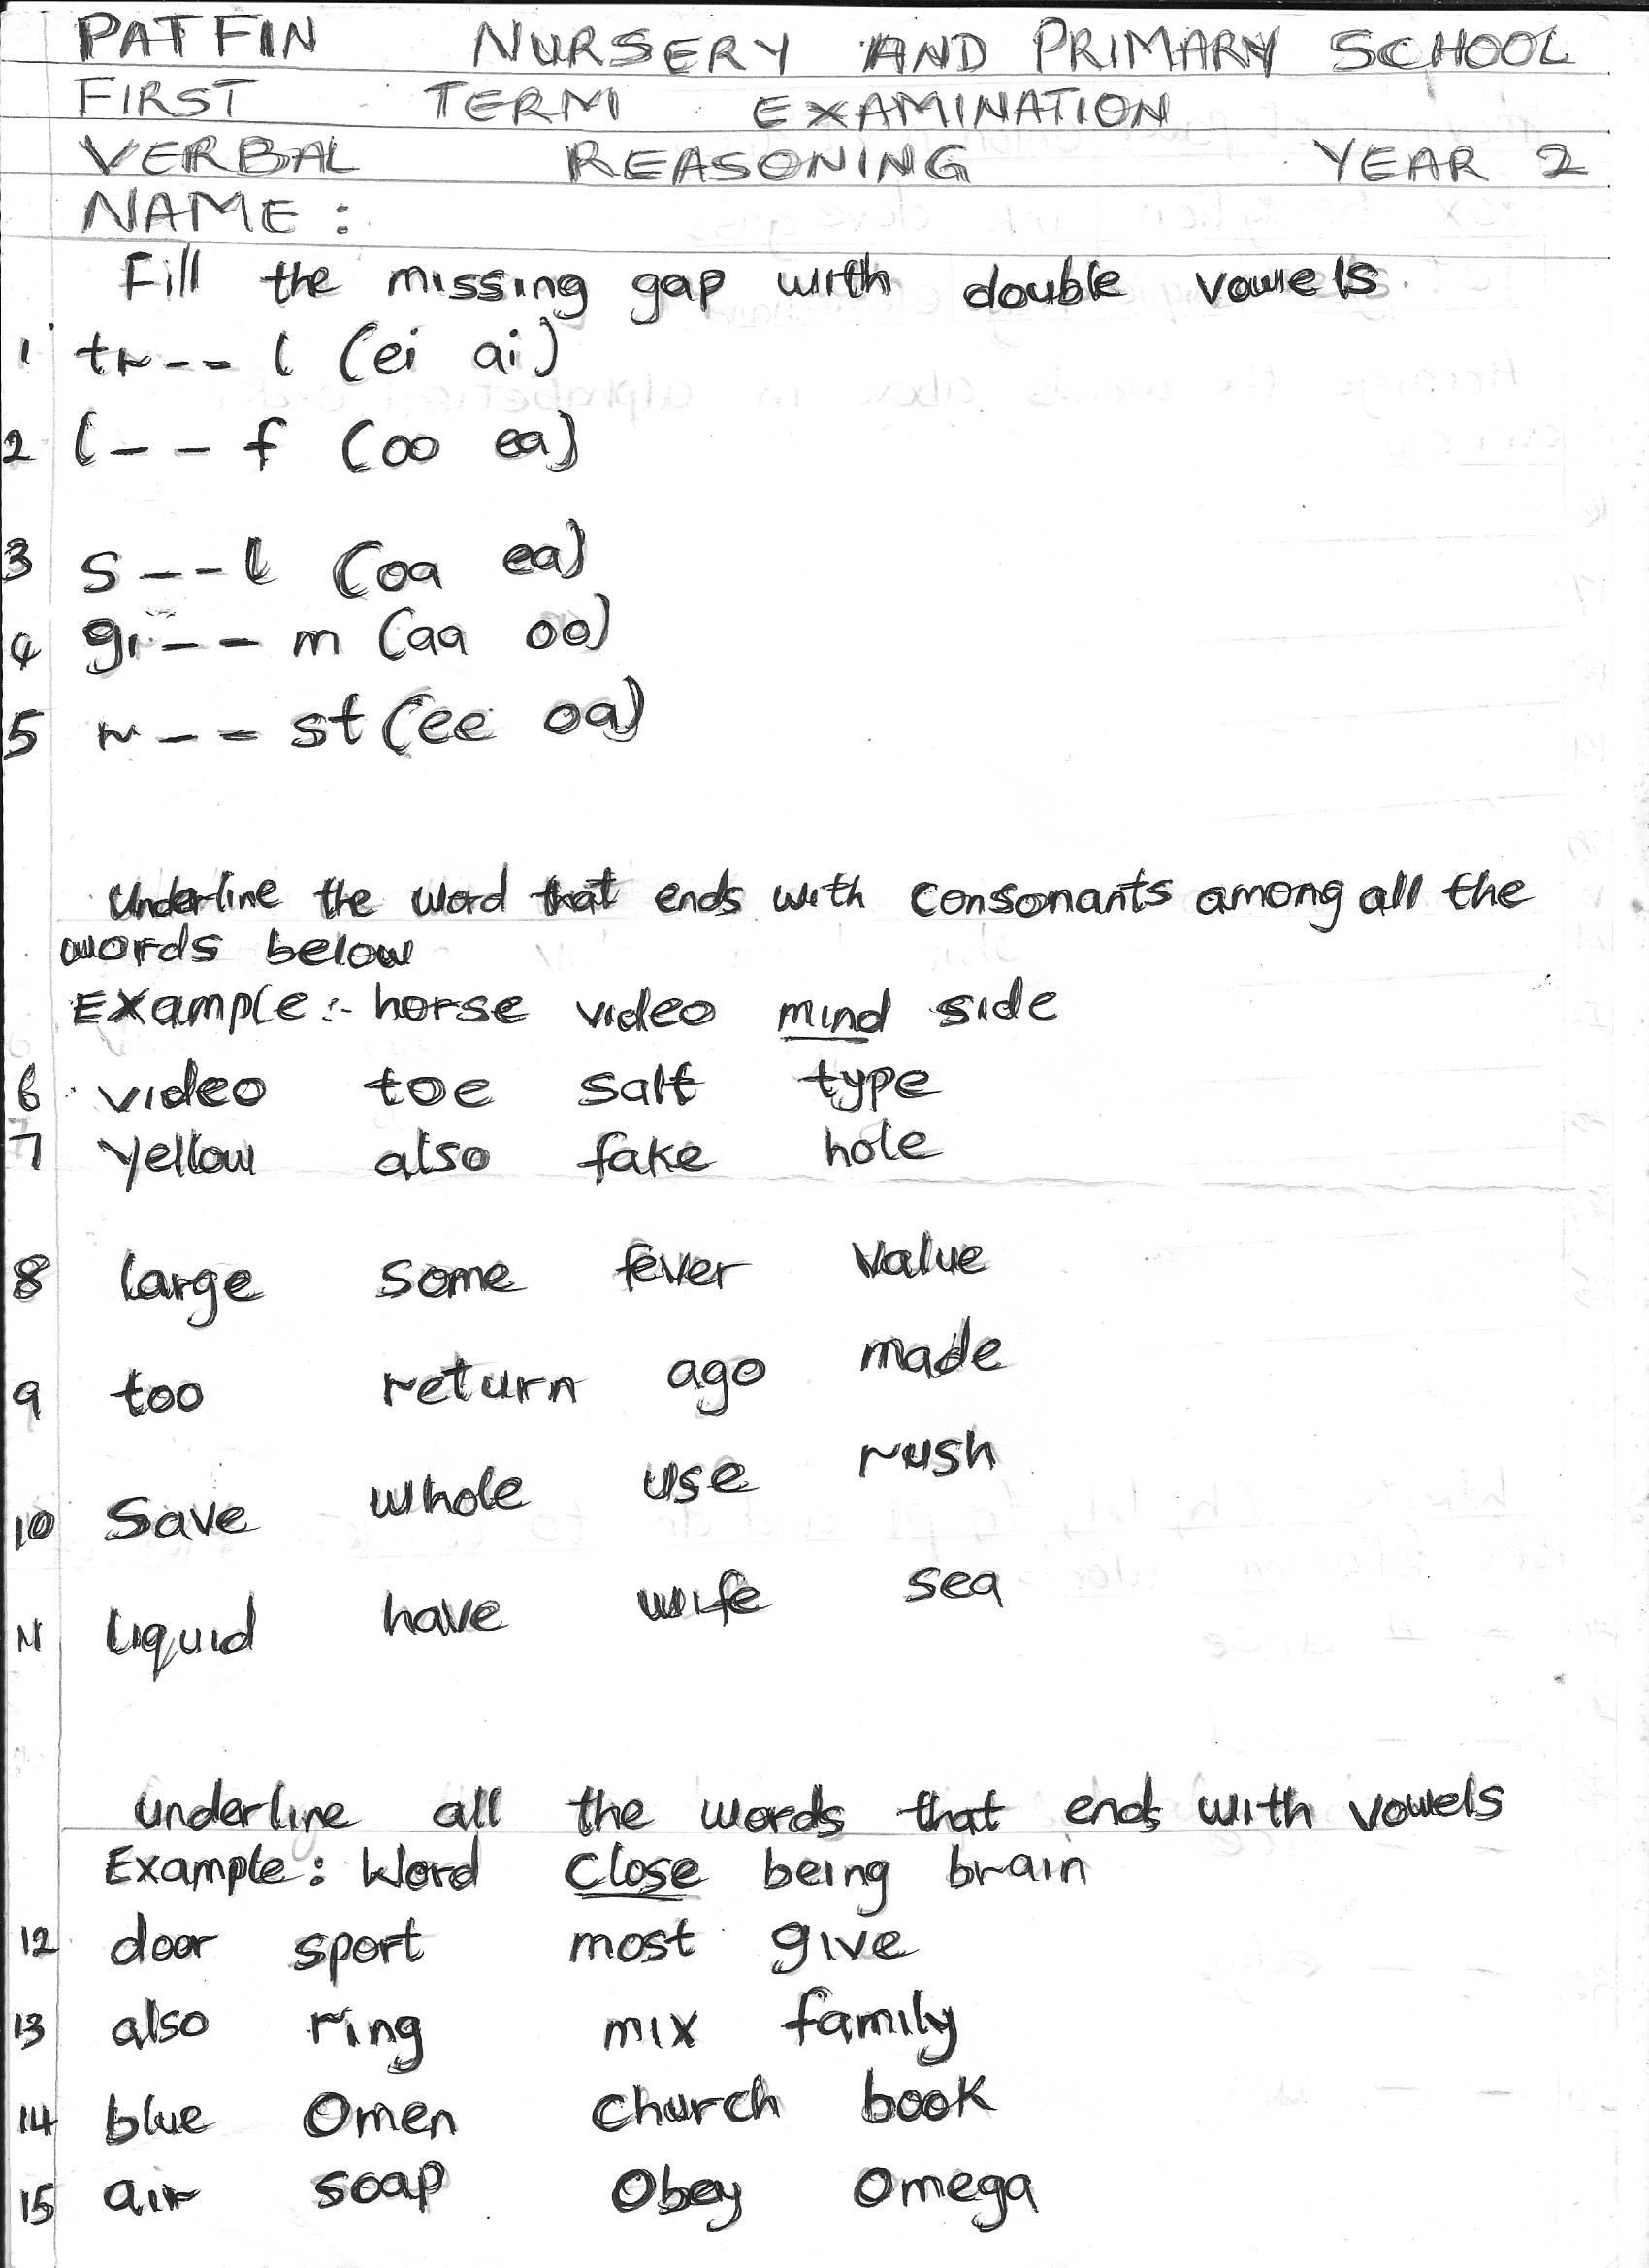 PATFIN NURSERY AND PRIMARY SCHOOL
FIRST TERM EXAMINATION
VERBAL REASONING YEAR 2
NAME :
Fill the missing gap with double vowels.
1 tr-- l (ei ai)
2 l-- f (oo ea)
3 s---l (oa ea)
4 gr-- m (aa oo)
5 r-- st (ee oa)
Underline the word that ends with consonants among all the
words below
Example:- horse video mind side
6 video toe salt type
7 yellow also fake hole
8 large some fever value
9 too return ago made
10 Save whole use rush
11 liquid have wife sea
underline all the words that ends with vowels
Example: Word close being brain
12 door sport most give
13 also ring mix family
14 blue Omen church book
15 air soap Obey Omega